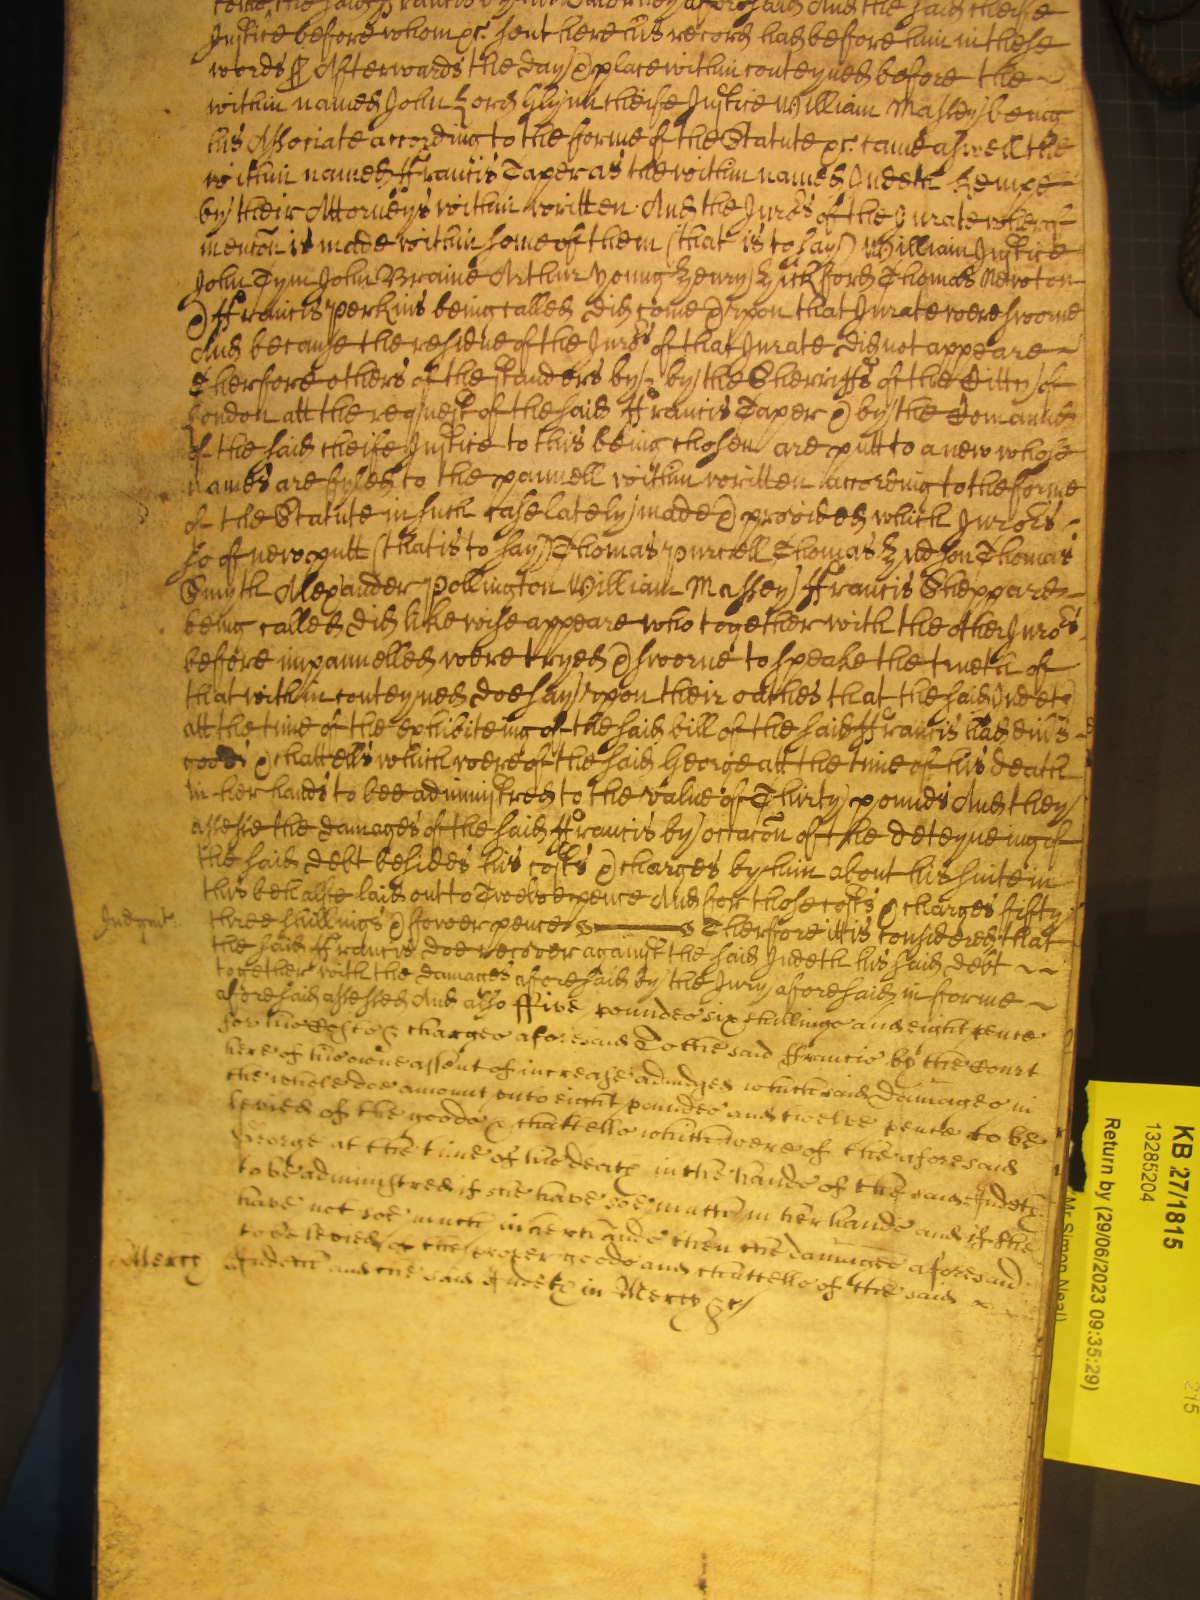 came the said Francis by his Attorney aforesaid And the said cheife
Justice before whom &c. sent here his record had before him in these
words ss Afterwards the day & place within conteyned before the
within named John Lord Glynn cheife Justice William Massey being
his Associate according to the forme of the Statute &c. came aswell the
within named Ffrancis Taper as the within named Judeth Kempe
by their Attorneys within written And the Juro:rs of the Jurate wherof
mencõn is made within some of them (that is to say) William Justice
John Tym John Braine Arthur Young Henry Hickford Thomas Newton
& Ffrancis Perkins being called did come & upon that Jurate were sworne
And because the residue of the Juro:rs of that Jurate did not appeare
Therfore others of the standers by, by the Sherriffs of the Citty of
London att the request of the said Ffrancis Taper & by the Comaund
of the said cheife Justice to this being chosen are putt to a new whose
names are fyled to the pannell within written according to the forme
of the Statute in such case lately made & provided which Juro:rs
so of new putt (that is to say) Thomas Purcell Thomas Hudson Thomas
Smyth Alexander Pollington William Massey Ffrancis Sheppard
being called did likewise appeare who together with the other Juro:rs
before impannelled were tryed & sworne to speake the trueth of
that within conteyned doe say upon their oathes that the said Judeth
att the time of the exhibiteing of the said bill of the said Ffrancis had divs
goods & chattells which were of the said George att the time of his death
in her hands to bee administred to the value of Thirty pounds And they
assesse the damages of the said Ffrancis by occacõn of the deteyneing of
the said debt besides his costs & charges by him about his suite in
this behalfe laid out to Twelve pence And for those costs & charges fifty
Judgmt. three shillings & fower pence Therfore itt is considered that
the said Ffrancis doe recover against the said Judeth his said debt
together with the damages aforesaid by the Jury aforesaid in forme
aforesaid assessed And also ffive poundes six shillings and eight pence
for his Costs & charges aforesaid To the said Ffrancis by the Court
here of his owne assent of increase adiudged which said damages in
the whole doe amount unto eight poundes and twelve pence to be
levied of the goods & chattells which were of the aforesaid
George at the time of his death in the hands of the said Judeth
to be administred if she have soe much in her hands and if she
have not soe much in her hands then the damages aforesaid
to be levied of the proper goods and chattells of the said
Mercy Judeth and the said Judeth in Mercy &c
KB 27/1815
13285204
Return by (29/06/2023 09:35:29)
(Mr Simon Neal)
215